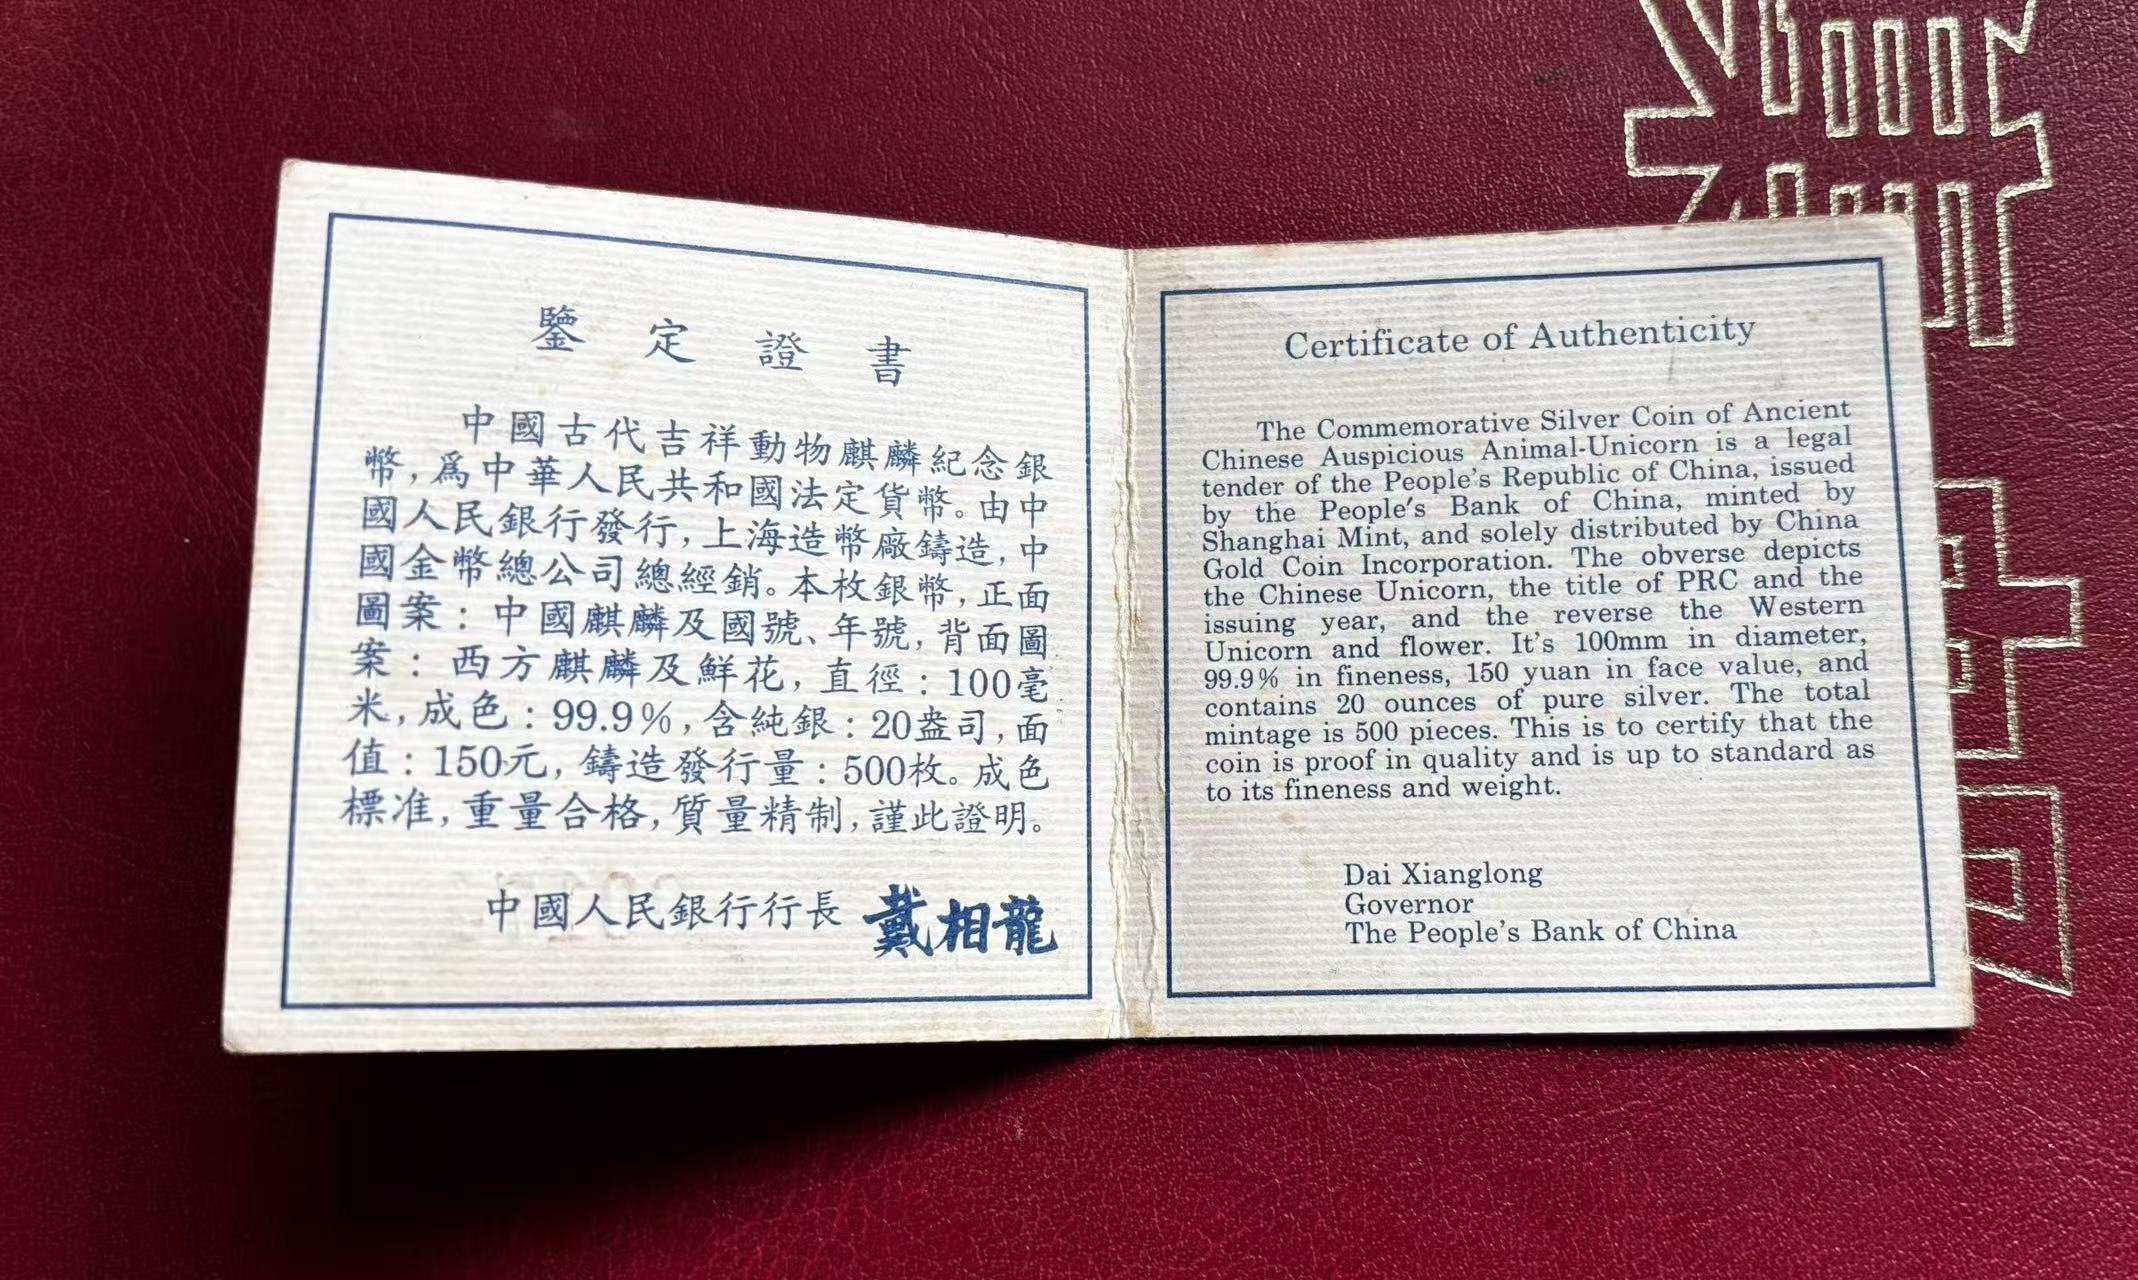 鑒定證書
中國古代吉祥動物麒麟紀念銀
幣，爲中華人民共和國法定貨幣。由中
國人民銀行發行，上海造幣廠鑄造，中
國金幣總公司總經銷。本枚銀幣，正面
圖案：中國麒麟及國號、年號，背面圖
案：西方麒麟及鮮花，直徑：100毫
米，成色：99.9%，含純銀：20盎司，面
值：150元，鑄造發行量：500枚。成色
標准，重量合格，質量精制，謹此證明。
中國人民銀行行長 戴相龍
Certificate of Authenticity
The Commemorative Silver Coin of Ancient
Chinese Auspicious Animal-Unicorn is a legal
tender of the People's Republic of China, issued
by the People's Bank of China, minted by
Shanghai Mint, and solely distributed by China
Gold Coin Incorporation. The obverse depicts
the Chinese Unicorn, the title of PRC and the
issuing year, and the reverse the Western
Unicorn and flower. It's 100mm in diameter,
99.9% in fineness, 150 yuan in face value, and
contains 20 ounces of pure silver. The total
mintage is 500 pieces. This is to certify that the
coin is proof in quality and is up to standard as
to its fineness and weight.
Dai Xianglong
Governor
The People's Bank of China